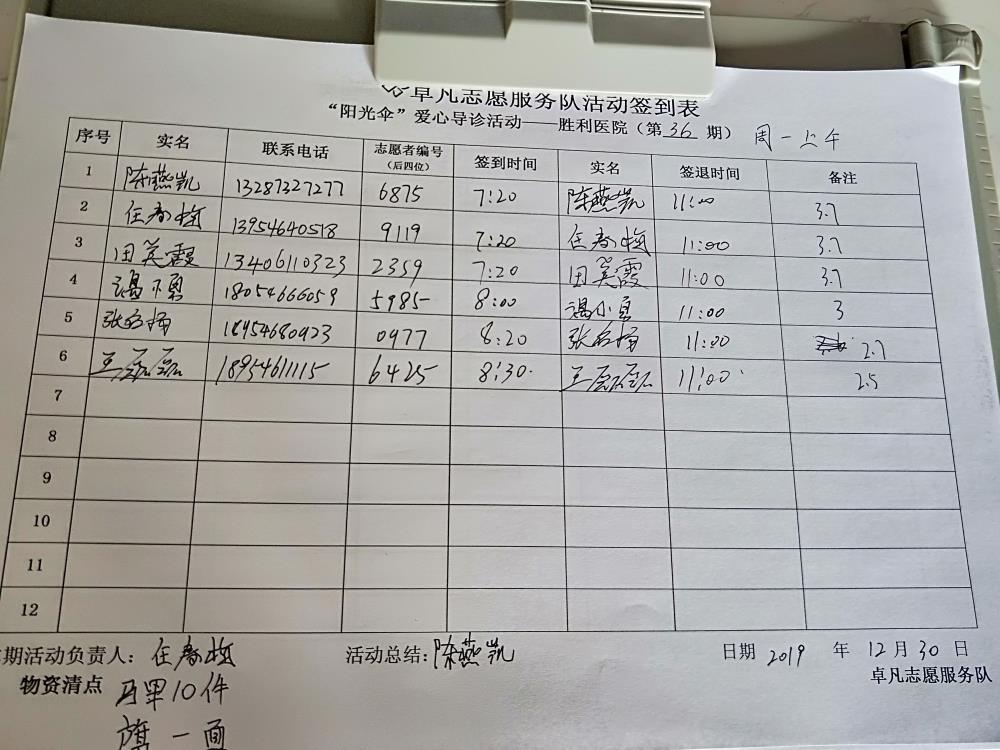 卓凡志愿服务队活动签到表
“阳光伞”爱心导诊活动——胜利医院（第 36 期） 周一上午
序号 实名 联系电话 志愿者编号（后四位） 签到时间 实名 签退时间 备注
1 陈燕凯 13287327277 6875 7:20 陈燕凯 11:00 3.7
2 任春梅 13954640518 9119 7:20 任春梅 11:00 3.7
3 田英霞 13406110323 2359 7:20 田英霞 11:00 3.7
4 18054666059 5985 8:00 11:00 3
5 张名扬 18954680923 0977 8:20 张名扬 11:00 2.7
6 王磊磊 18954611115 6425 8:30 王磊磊 11:00 2.5
7
8
9
10
11
12
期活动负责人：任春梅 活动总结：陈燕凯 日期 2019 年 12 月 30 日
物资清点 马甲10件 卓凡志愿服务队
旗一面